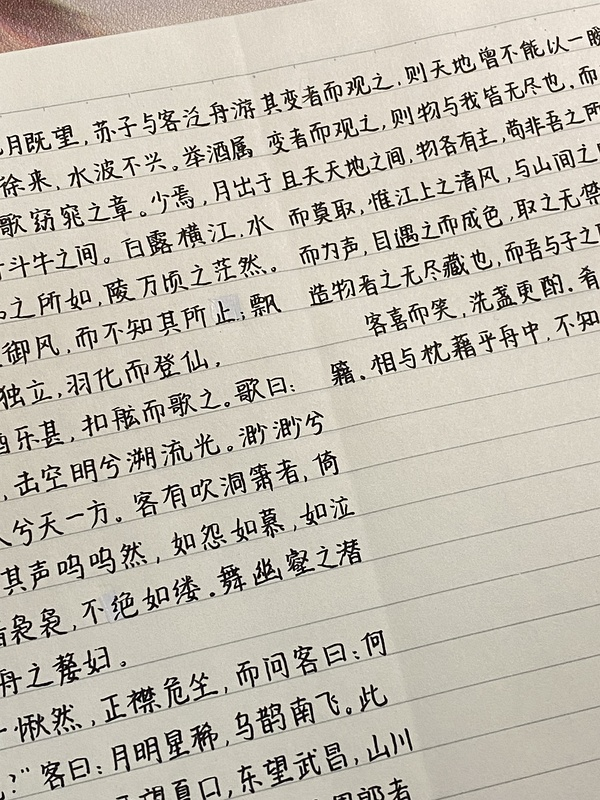 月既望,苏子与客泛舟游
徐来,水波不兴。举酒属
歌窈窕之章。少焉,月出于
斗牛之间。白露横江,水
之所如,陵万顷之茫然。
御风,而不知其所止;飘
独立,羽化而登仙,
乐甚,扣舷而歌之。歌曰:
,击空明兮溯流光。渺渺兮
兮天一方。客有吹洞箫者,倚
其声呜呜然,如怨如慕,如泣
袅袅,不绝如缕。舞幽壑之潜
舟之嫠妇。
愀然,正襟危坐,而问客曰:何
?"客曰:月明星稀,乌鹊南飞。此
望夏口,东望武昌,山川
周郎者
其变者而观之,则天地曾不能以一瞬
变者而观之,则物与我皆无尽也,而
且夫天地之间,物各有主,苟非吾之所
而莫取,惟江上之清风,与山间之
而为声,目遇之而成色,取之无禁
造物者之无尽藏也,而吾与子之
客喜而笑,洗盏更酌。肴
籍。相与枕藉乎舟中,不知